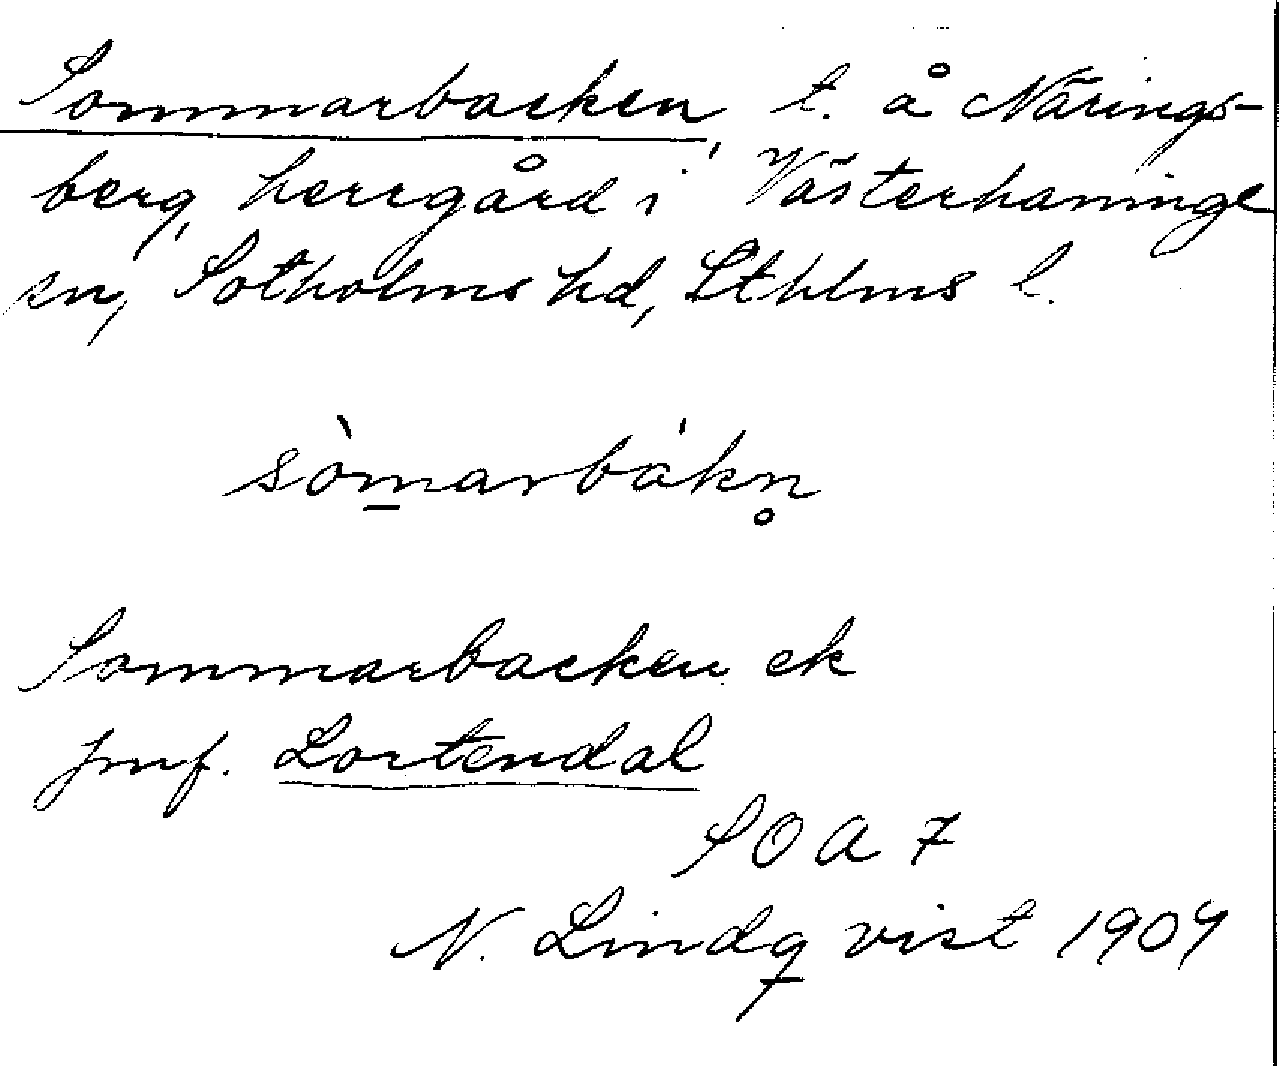 Sommarbacken, t. å Närings-
berg, herrgård i Västerhaninge
sn, Sotholms hd, Sthlms l.
sòmarbákn̥
Sommarbacken ek
jmf. Lortendal
SOA 7
N. Lindqvist 1904